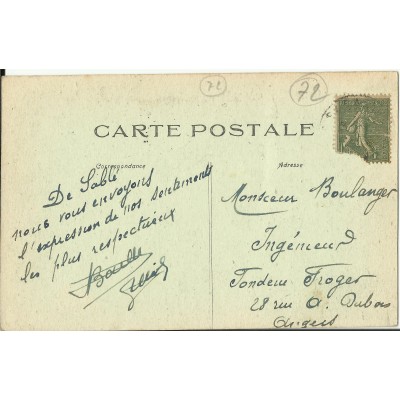 72
72
CARTE POSTALE
Correspondance
Adresse
De Sablé
nous vous envoyons
l'expression de nos sentiments
les plus respectueux
Monsieur Boulanger
Ingénieur
Fonderie Froger
28 rue A. Dubois
Angers